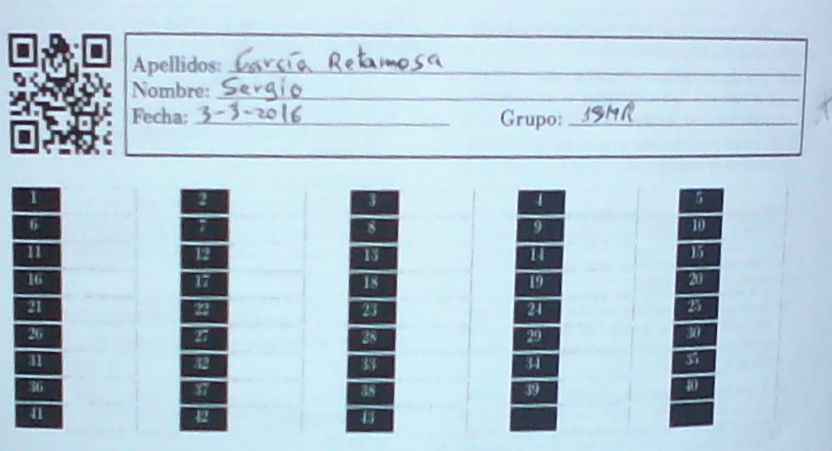 Apellidos: García Retamosa
Nombre: Sergio
Fecha: 3-3-2016 Grupo: 1SMR
1 2 3 4 5
6 7 8 9 10
11 12 13 14 15
16 17 18 19 20
21 22 23 24 25
26 27 28 29 30
31 32 33 34 35
36 37 38 39 40
41 42 43